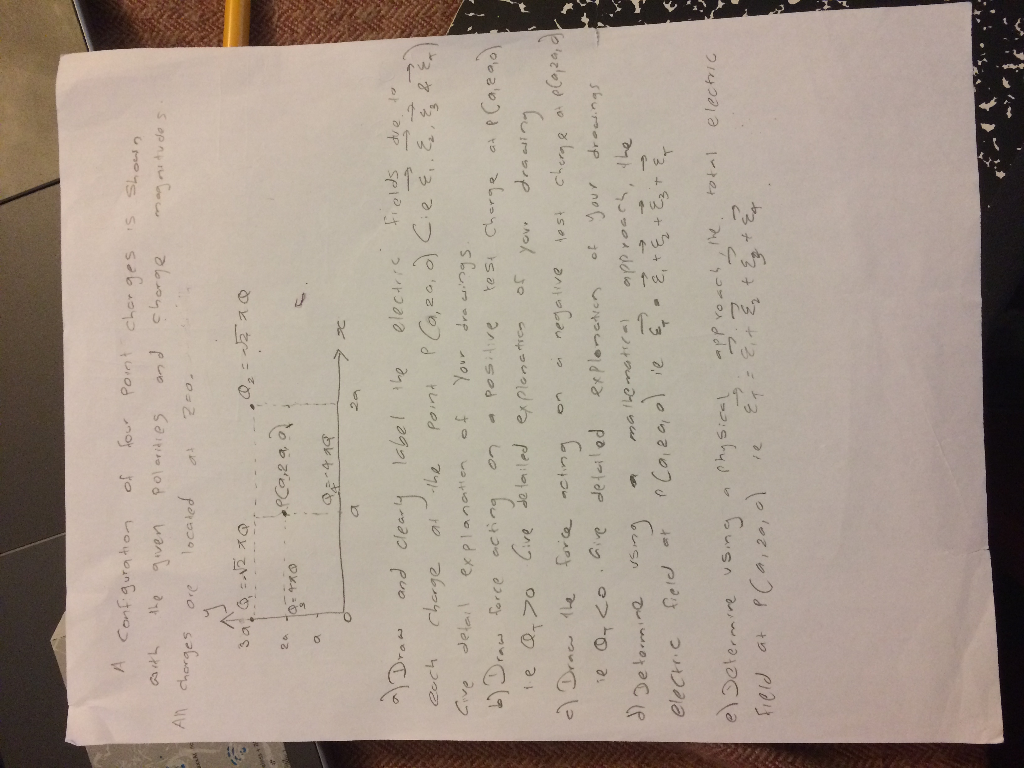 A configuration of four point charges is shown
with the given polarities and charge magnitudes.
All charges are located at z=0.
y
3a Q₁=-√2 πQ Q₂=-√2 πQ
2a Q₃=4πQ P(a,2a,0)
a Q₄=4πQ
0 a 2a x
a) Draw and clearly label the electric fields due to
each charge at the point P(a,2a,0) (ie E₁, E₂, E₃ & E₄)
Give detail explanation of your drawings.
b) Draw force acting on a positive test charge at P(a,2a,0)
ie Q_T>0 Give detailed explanation of your drawing
c) Draw the force acting on a negative test charge at P(a,2a,0)
ie Q_T<0. Give detailed explanation of your drawings
d) Determine using a mathematical approach, the
electric field at P(a,2a,0) ie E_T = E₁+E₂+E₃+E₄
e) Determine using a physical approach, the total electric
field at P(a,2a,0) ie E_T = E₁+E₂+E₃+E₄